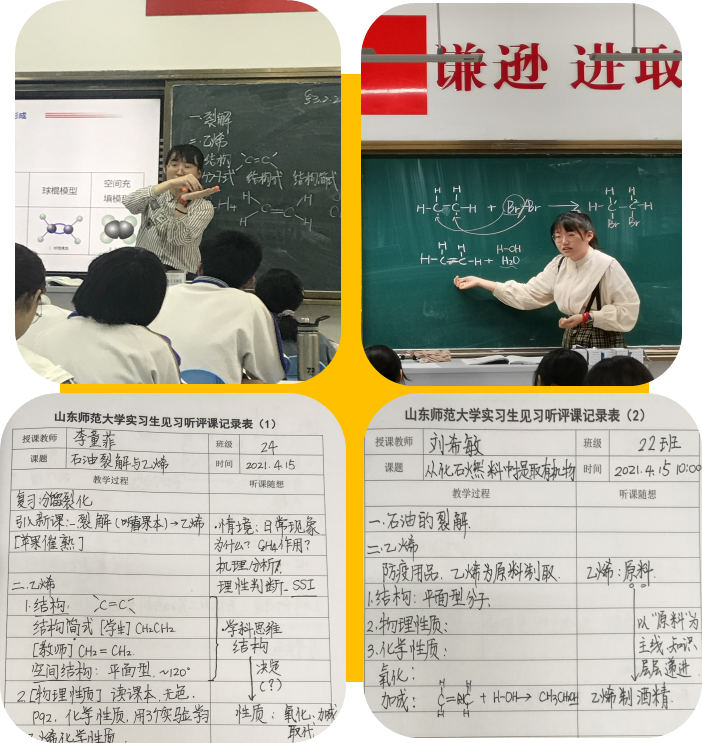 形成
球棍模型
空间充
填模型
§3.2.2
一.裂解
二.乙烯
结构
C=C
分子式 结构式 结构简式
H H
C=C
H H
谦逊 进取
H H
H-C=C-H + Br-Br → H-C-C-H
Br Br
H H H-OH
H-C=C-H + H₂O
山东师范大学实习生见习听评课记录表（1）
授课教师 李童菲 班级 24
课题 石油裂解与乙烯 时间 2021.4.15
教学过程 听课随想
复习:分馏裂化
引入新课:-裂解(课本)→乙烯
[苹果催熟]
二.乙烯
1.结构: C=C
结构简式 [学生] CH₂CH₂
[教师] CH₂=CH₂
空间结构: 平面型 ~120°
2.[物理性质] 读课本、无色.
P92. 化学性质,用3个实验学习
乙烯化学性质.
·情境:日常现象
为什么? C₂H₄作用?
机理分析
理性判断-SSI
·学科思维
结构
决定
(?)
性质: 氧化,加成
取代
山东师范大学实习生见习听评课记录表（2）
授课教师 刘希敏 班级 22班
课题 从化石燃料中提取有机物 时间 2021.4.15 10:00
教学过程 听课随想
一.石油的裂解.
二.乙烯
防疫用品. 乙烯为原料制取.
1.结构: 平面型分子.
2.物理性质:
3.化学性质:
氧化:
加成: C=C + H-OH→ CH3CH2OH
乙烯:原料.
以“原料”为
主线,知识
层层递进.
乙烯制酒精.